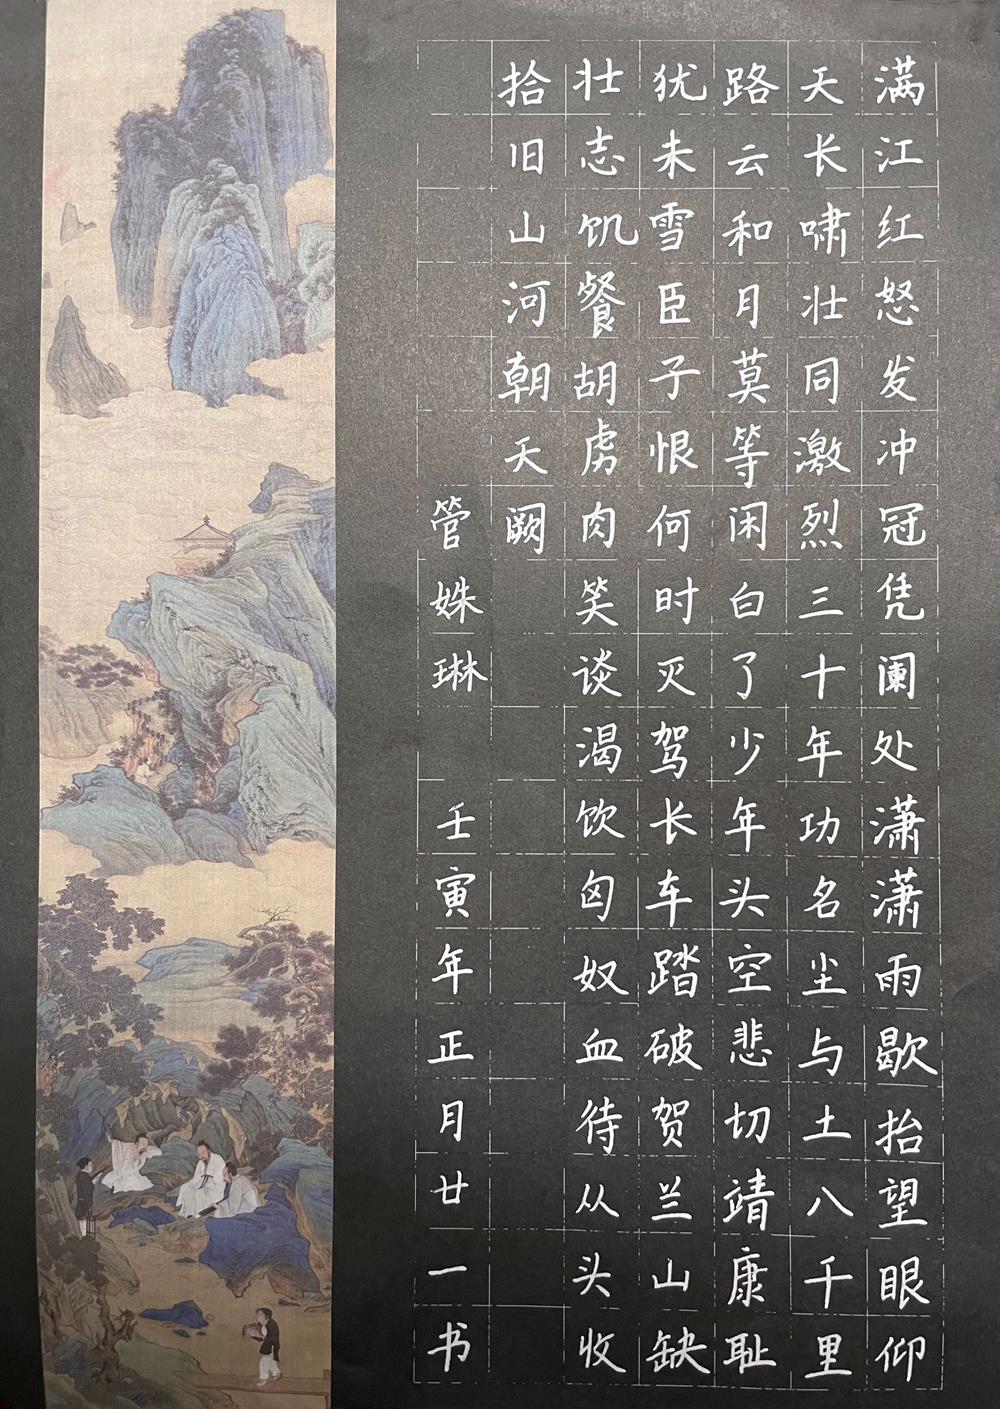 满江红怒发冲冠凭阑处潇潇雨歇抬望眼仰
天长啸壮同激烈三十年功名尘与土八千里
路云和月莫等闲白了少年头空悲切靖康耻
犹未雪臣子恨何时灭驾长车踏破贺兰山缺
壮志饥餐胡虏肉笑谈渴饮匈奴血待从头收
拾旧山河朝天阙
管姝琳 壬寅年正月廿一书